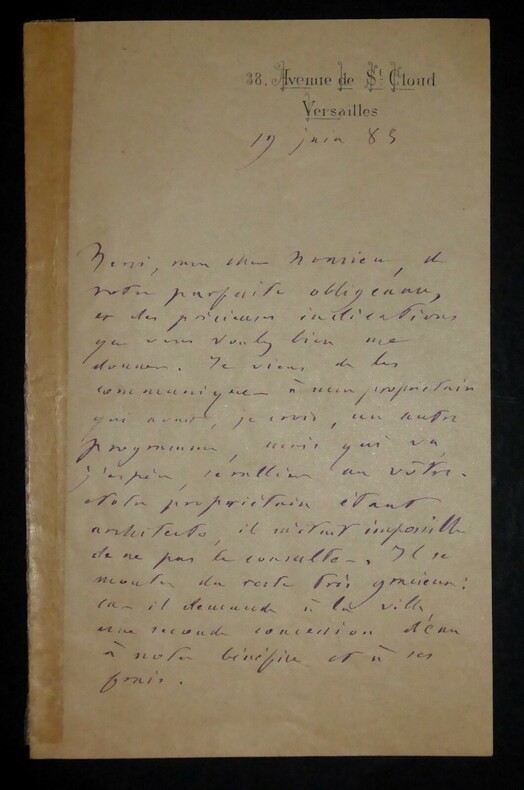 38, Avenue de St Cloud
Versailles
19 juin 85
Merci, mon cher Monsieur, de
votre parfaite obligeance,
et des précieuses indications
que vous voulez bien me
donner. Je viens de les
communiquer à mon propriétaire
qui avait, je crois, un autre
programme, mais qui va,
j'espère, se rallier au vôtre.
Notre propriétaire étant
architecte, il m'était impossible
de ne pas le consulter. Il se
montre du reste très gracieux:
car il demande à la ville
une seconde concession d'eau
à notre bénéfice et à ses
frais.